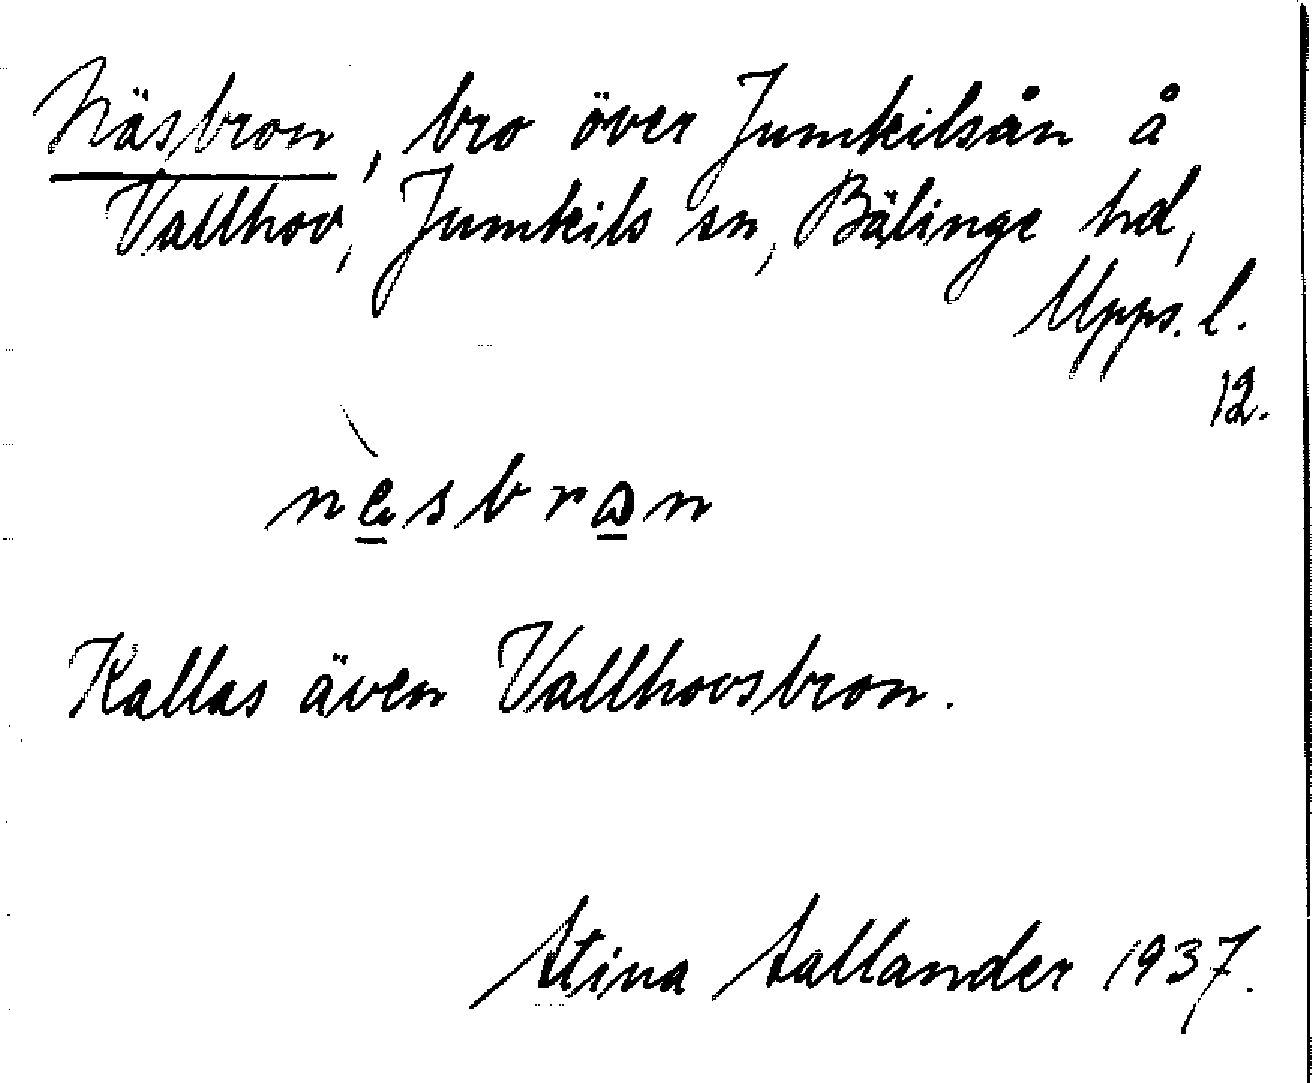 Näsbron, bro över Jumkilsån å
Vallhov, Jumkils sn, Bälinge hd,
Upps. l.
12.
nèsbrωn
Kallas även Vallhovsbron.
Stina Sallander 1937.